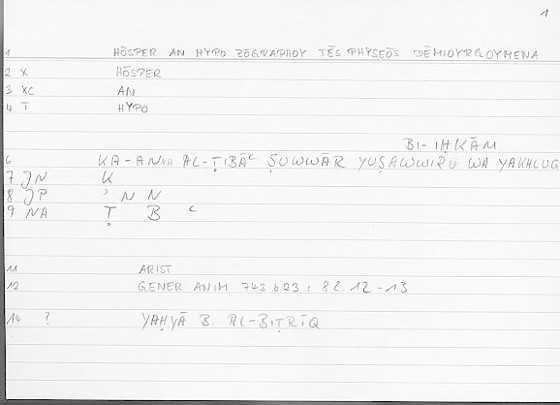 1
1 HŌSPER AN HYPO ZŌGRAPHOY TĒS PHYSEŌS DĒMIOYRGOYMENA
2 X HŌSPER
3 XC AN
4 T HYPO
BI-IḤKĀM
6 KA-ANNA AL-ṬIBĀʿ ṢUWWĀR YUṢAWWIRU WA YAKHLUQ
7 JN K
8 JP ʾ N N
9 NA Ṭ B ʿ
11 ARIST
12 GENER ANIM 743 b23; 82.12-13
14 ? YAḤYĀ B. AL-BIṬRĪQ